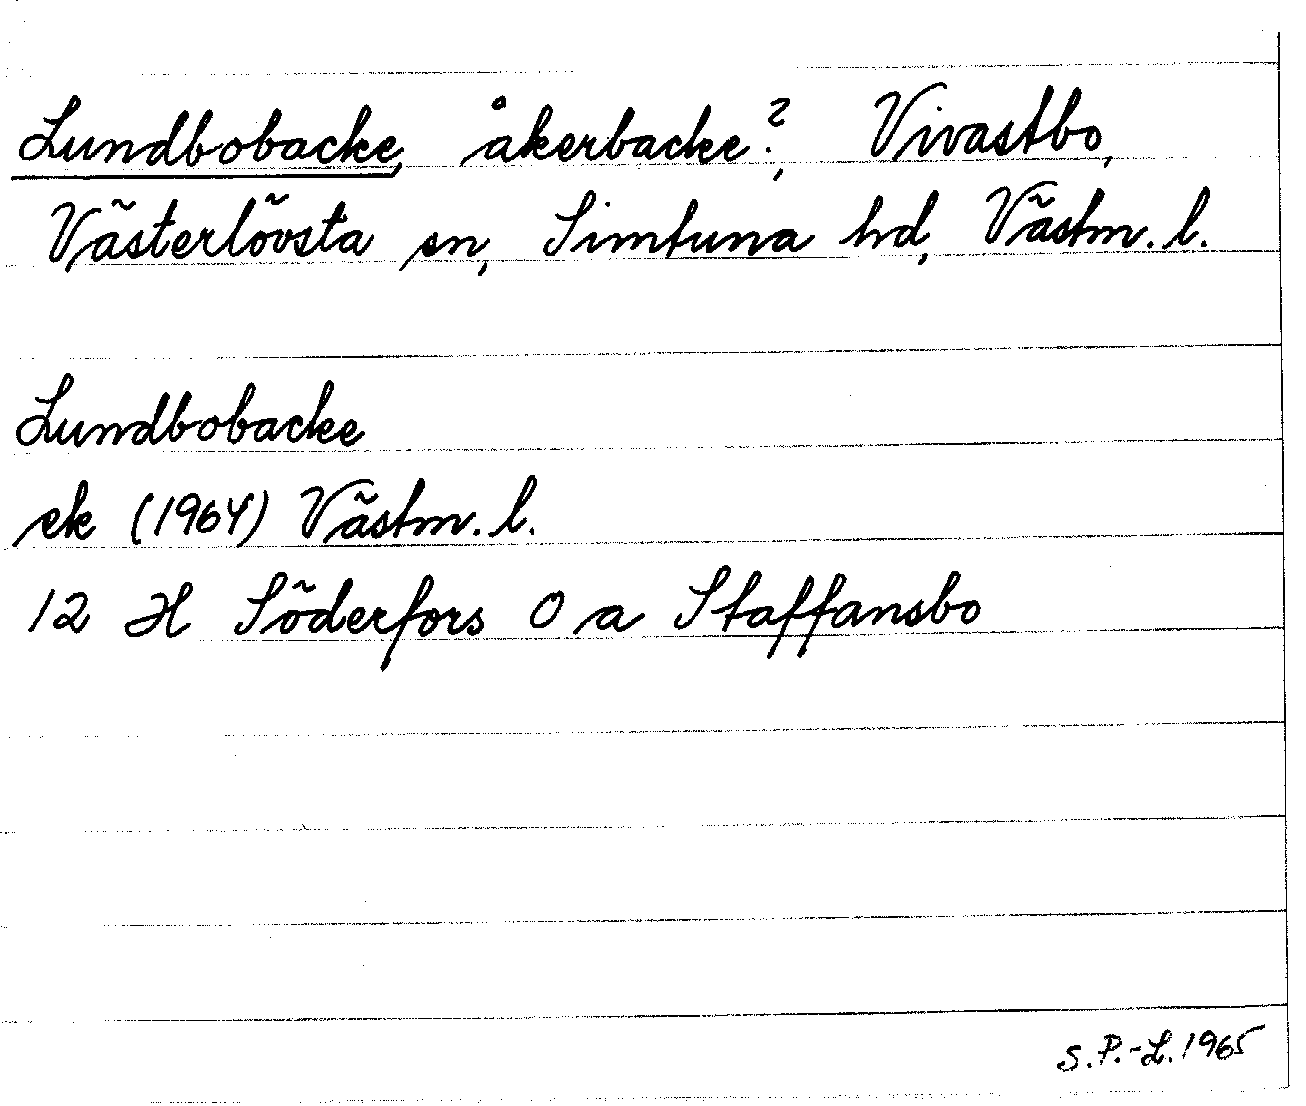 Lundbobacke, åkerbacke?, Vivastbo,
Västerlövsta sn, Simtuna hd, Västm. l.
Lundbobacke
ek (1964) Västm. l.
12 H Söderfors 0 a Staffansbo
S.P.-L. 1965